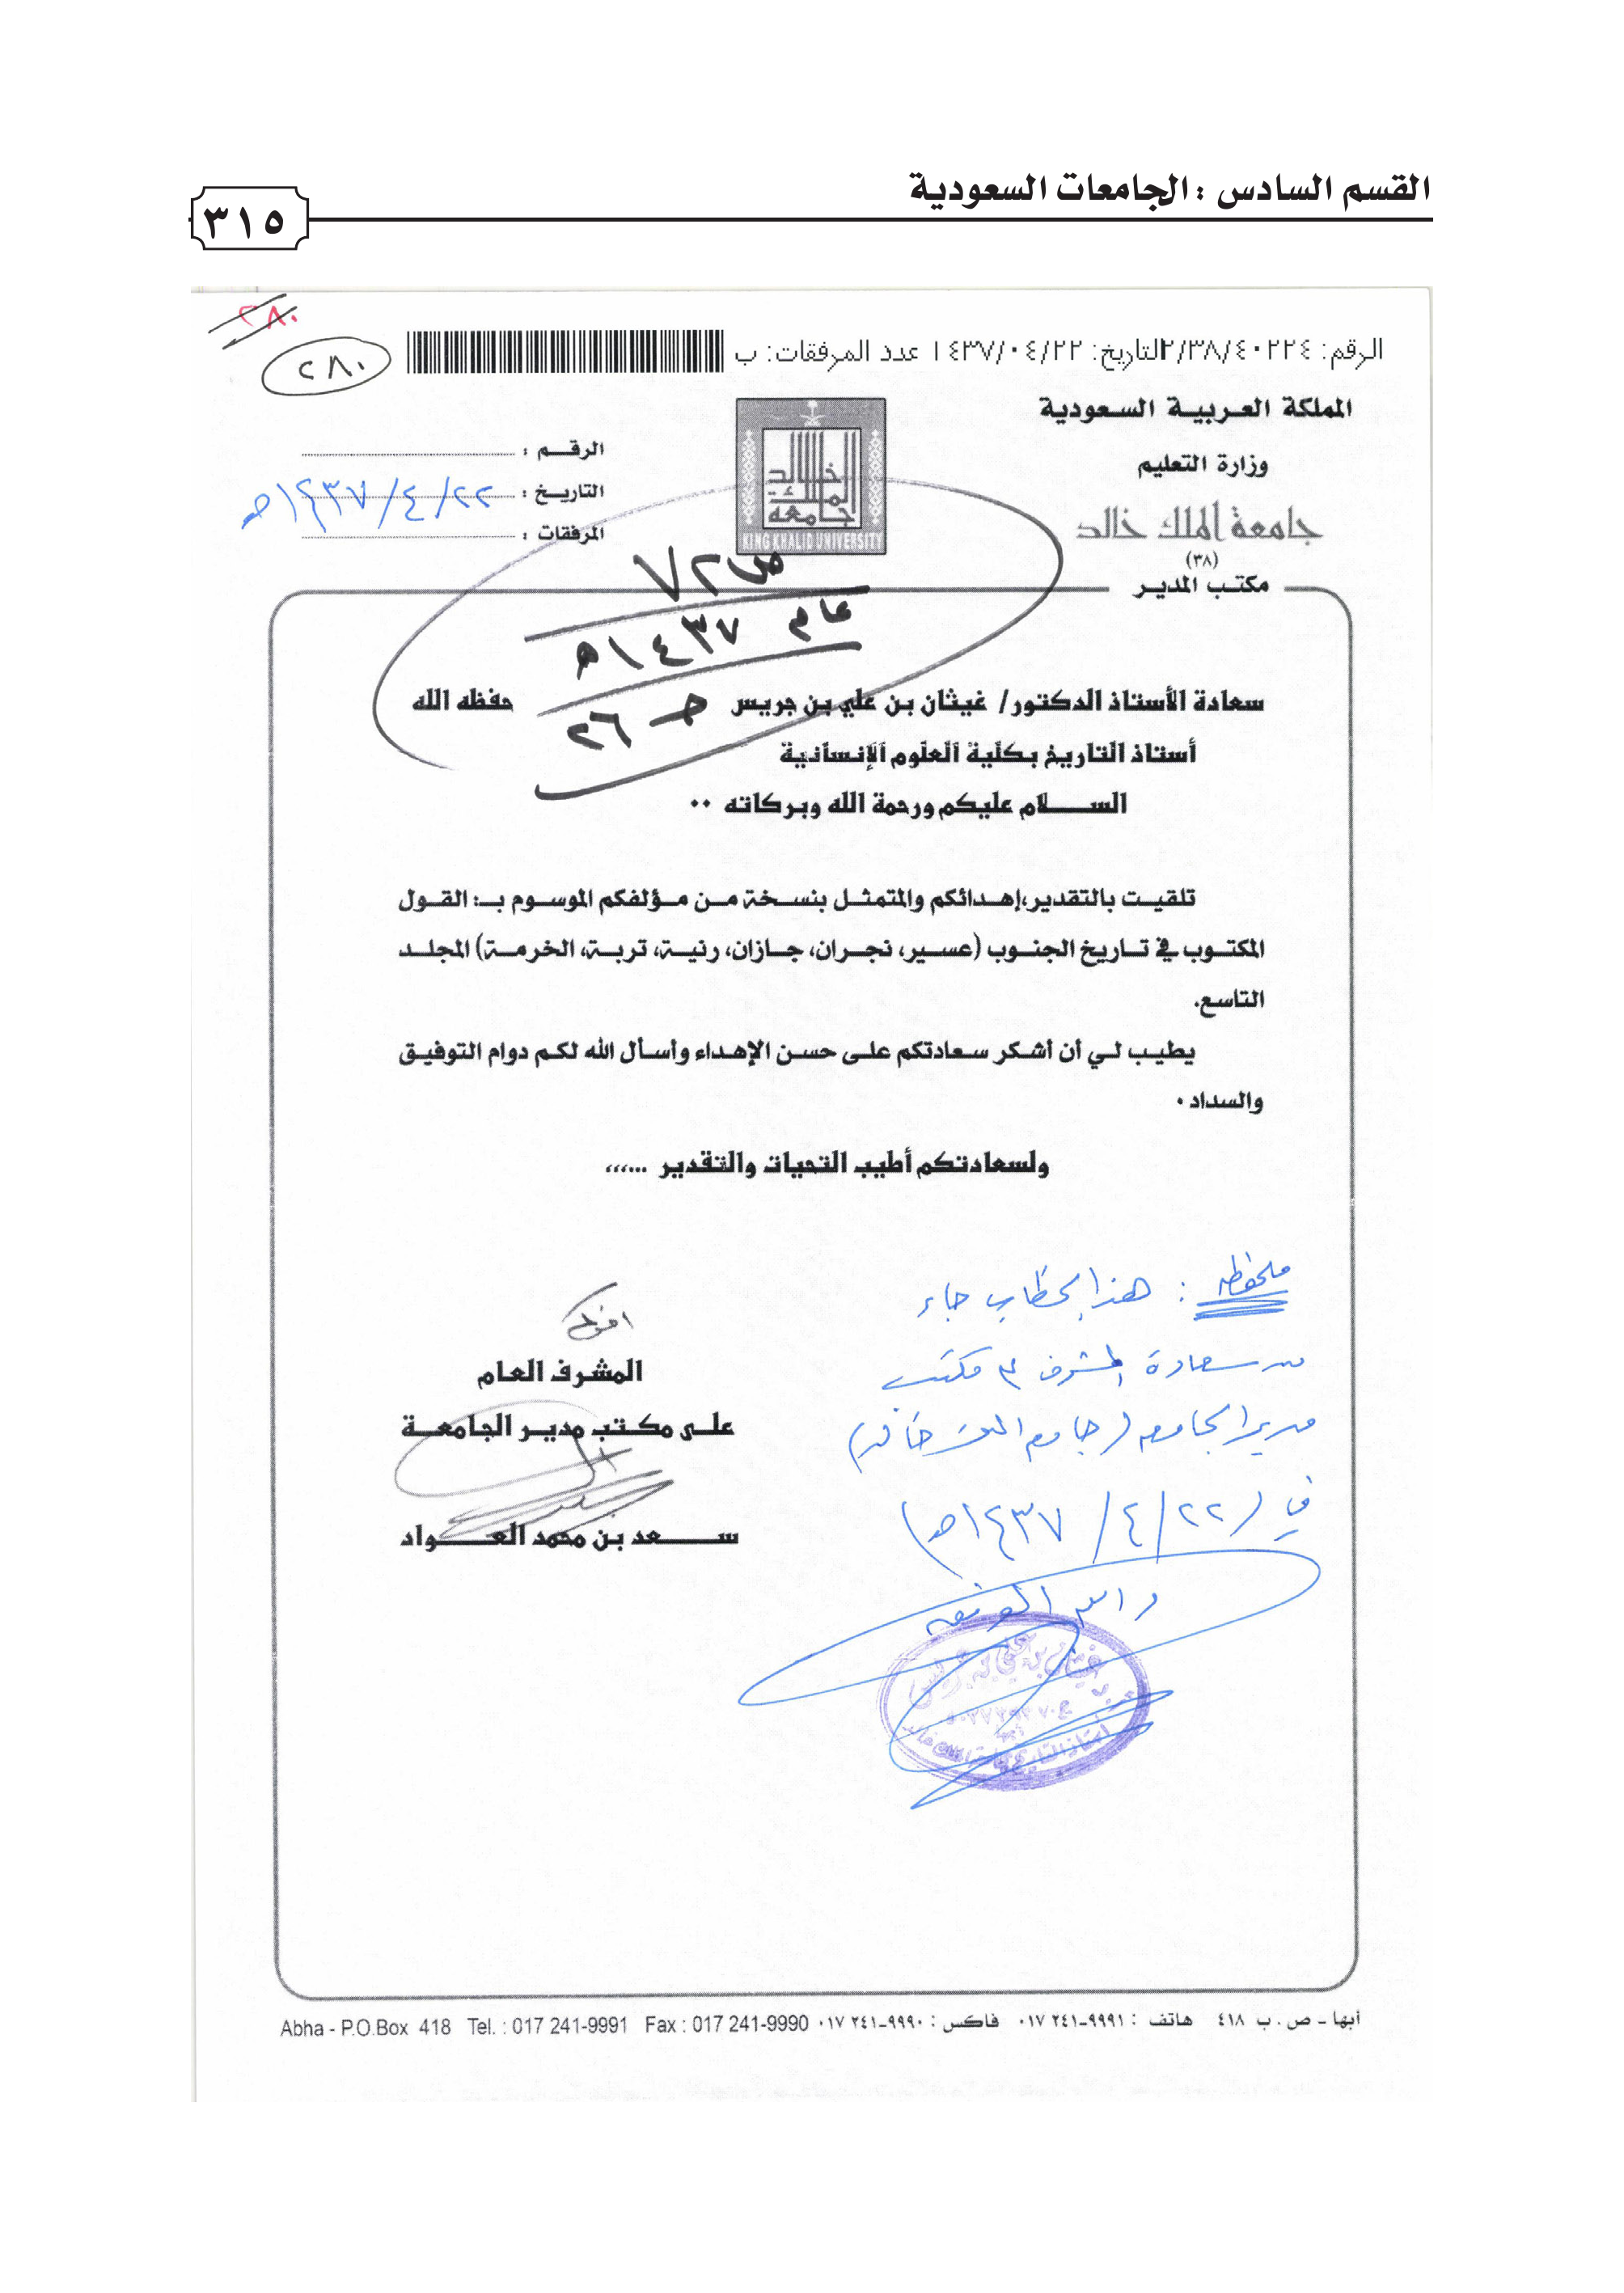 القسم السادس : الجامعات السعودية
٣١٥
٢٨٠
٢٨٠
الرقم: ٢/٣٨/٤٠٢٢٤ التاريخ: ١٤٣٧/٠٤/٢٢ عدد المرفقات: ب
المملكة العربية السعودية
وزارة التعليم
جامعة الملك خالد
(٣٨)
مكتب المدير
جامعة الملك خالد
KING KHALID UNIVERSITY
الرقم :
التاريخ : ٢٢/٤/١٤٣٧هـ
المرفقات :
ص٧٢
عام ١٤٣٧هـ
حـ ٢٦
سعادة الأستاذ الدكتور/ غيثان بن علي بن جريس حفظه الله
أستاذ التاريخ بكلية العلوم الإنسانية
السلام عليكم ورحمة الله وبركاته ٠٠
تلقيت بالتقدير،إهدائكم والمتمثل بنسخة من مؤلفكم الموسوم بـ: القول
المكتوب في تاريخ الجنوب (عسير، نجران، جازان، رنية، تربة، الخرمة) المجلد
التاسع.
يطيب لي أن أشكر سعادتكم على حسن الإهداء وأسأل الله لكم دوام التوفيق
والسداد ٠
ولسعادتكم أطيب التحيات والتقدير ……،،
أخوكم
المشرف العام
على مكتب مدير الجامعة
سعد بن محمد العواد
ملحوظه : هذا الخطاب جاء
من سعادة المشرف على مكتب
مدير الجامعه (جامعة الملك خالد)
في (٢٢/٤/١٤٣٧هـ)
والله الموفق
غيثان بن علي بن جريس
أستاذ التاريخ بجامعة الملك خالد
أبها - ص . ب ٤١٨ هاتف : ٩٩٩١-٢٤١ ٠١٧ فاكس : ٩٩٩٠-٢٤١ ٠١٧ Abha - P.O.Box 418 Tel. : 017 241-9991 Fax : 017 241-9990